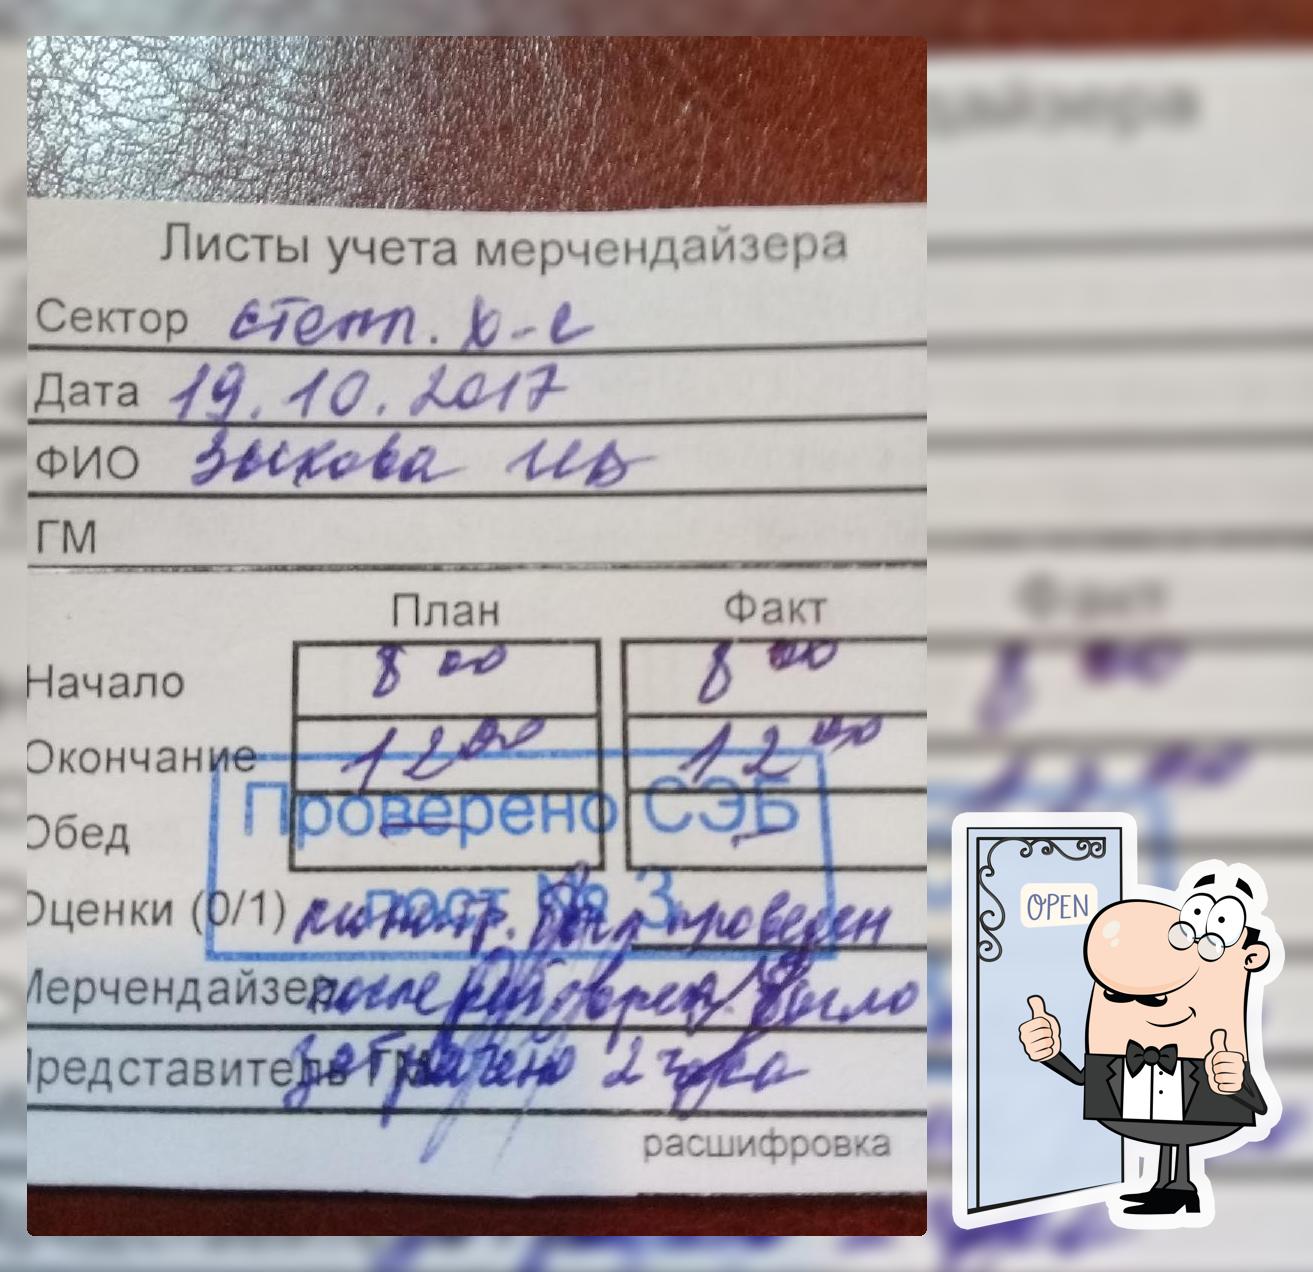 Листы учета мерчендайзера
Сектор степп. х-с
Дата 19.10.2017
ФИО Зыкова ИВ
ГМ
План Факт
Начало 8 00 8 00
Окончание 12 00 12 00
Проверено СЭБ
Обед — —
пост № 3
Оценки (0/1) проверен
Мерчендайзер после было
Представитель ГМ 2 часа
расшифровка
OPEN